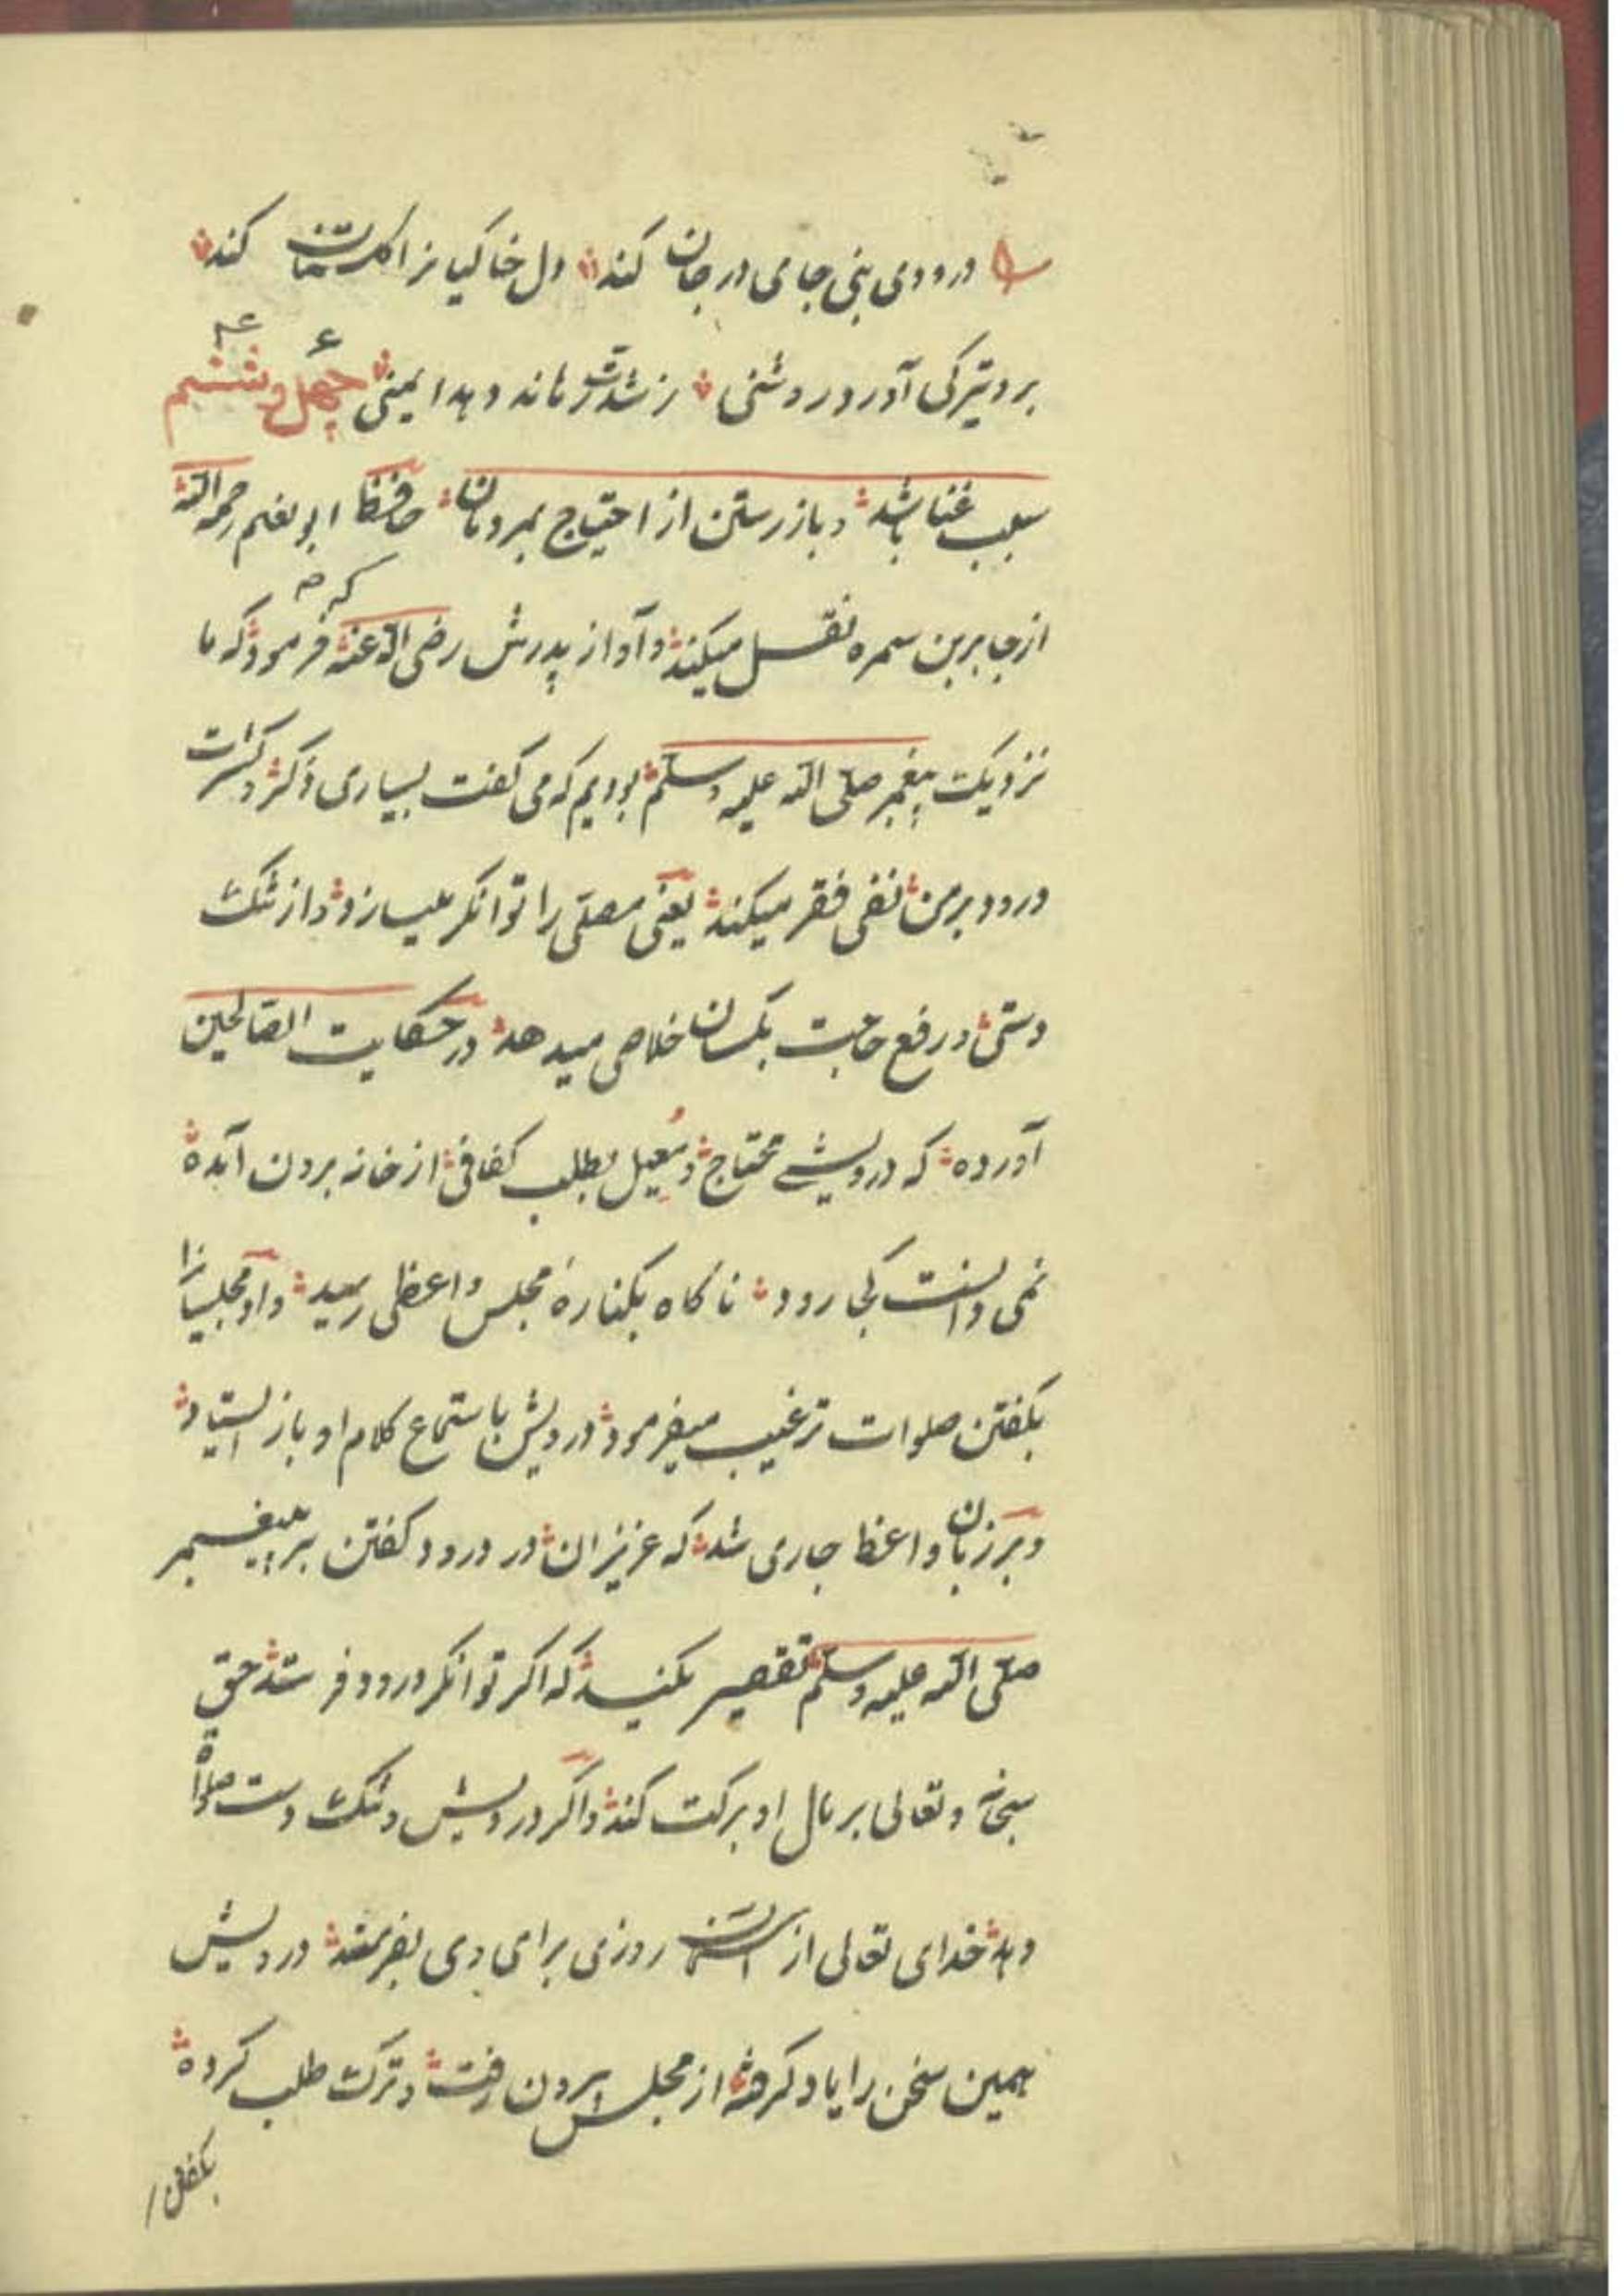 درودی بنی جای در جان کند دل خاکیانرا گلستان کند
برد تیرگی آورد روشنی ز شدت رهاند دهد ایمنی چهل و ششم
سبب غنا باشد و باز رستن از احتیاج بمردمان حافظ ابو نعیم رحمه الله
از جابر بن سمره نقل میکند و او از پدرش رضی الله عنه که فرمود که ما
نزدیک پیغمبر صلی الله علیه وسلم بودیم که می گفت بسیاری ذکر و کثرت
درود بر من نفی فقر میکند یعنی مصلی را توانگر میسازد و از تنگ
دستی و رفع حاجت بکسان خلاصی میدهد در حکایت الصالحین
آورده که درویشی محتاج و معیل بطلب کفافی از خانه برون آمده
نمی دانست کجا رود ناگاه بکناره مجلس واعظی رسید و او مجلسیانرا
بگفتن صلوات ترغیب میفرمود درویش باستماع کلام او باز ایستاد
و بر زبان واعظ جاری شد که عزیزان در درود گفتن بر پیغمبر
صلی الله علیه وسلم تقصیر مکنید که اگر توانگر درود فرستد حق
سبحانه و تعالی بر مال او برکت کند و اگر درویش و تنگ دست صلوة
دهد خدای تعالی از آسمان روزی برای وی بفرستد درویش
همین سخن را یاد گرفته از مجلس برون رفت و ترک طلب کرده
بگفتن